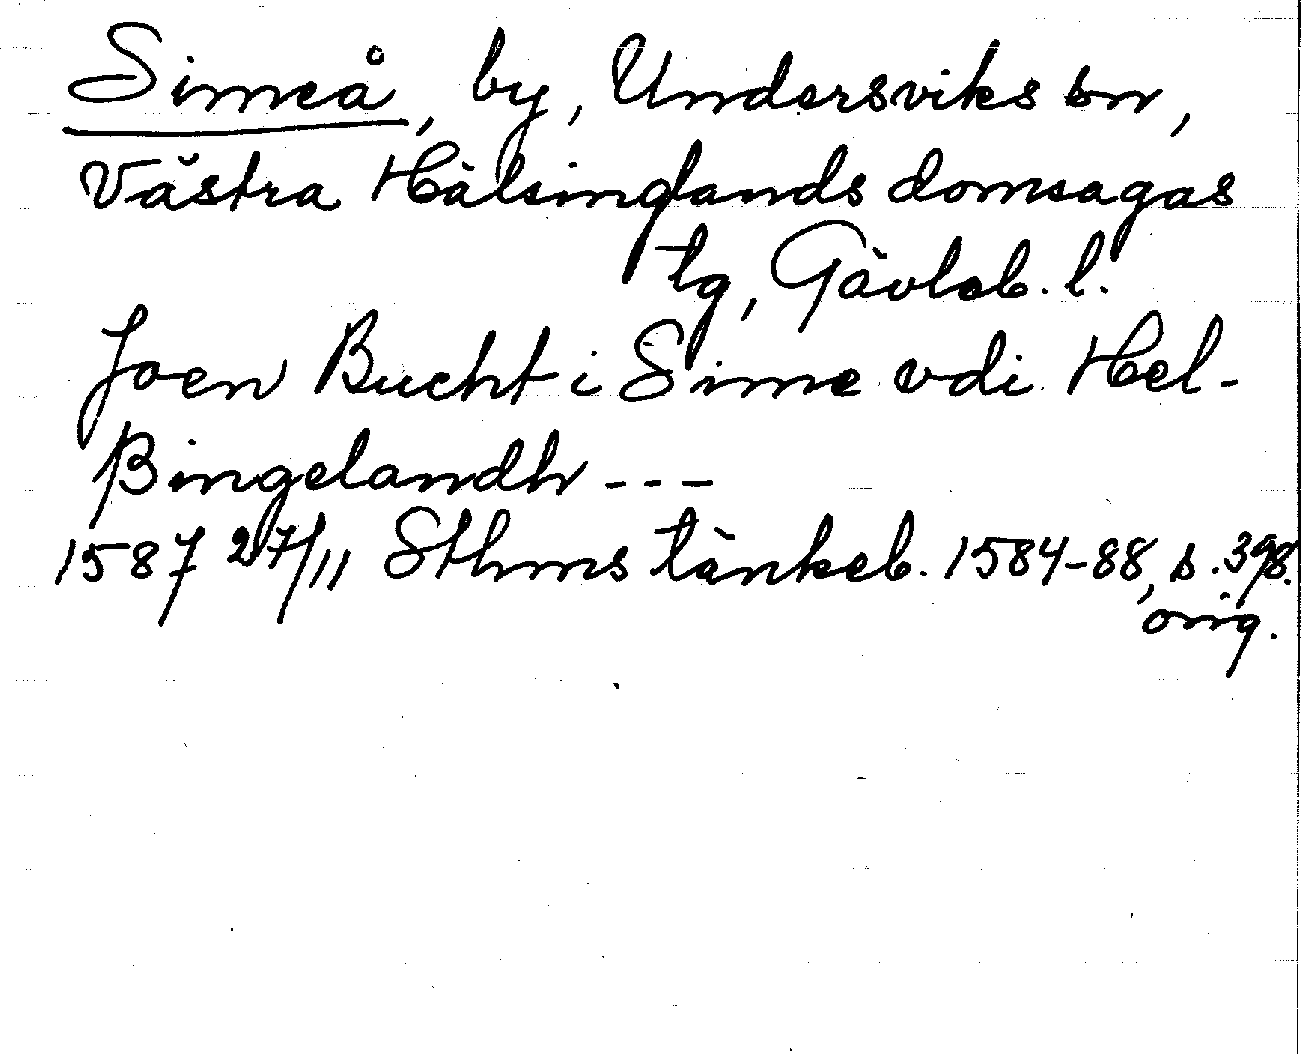 Simeå, by, Undersviks sn,
Västra Hälsinglands domsagas
tg, Gävleb. l.
Joen Bucht i Sime vdi Hel-
ßingelandh ---
1587 27/11 Sthms tänkeb. 1584-88, s. 398.
orig.